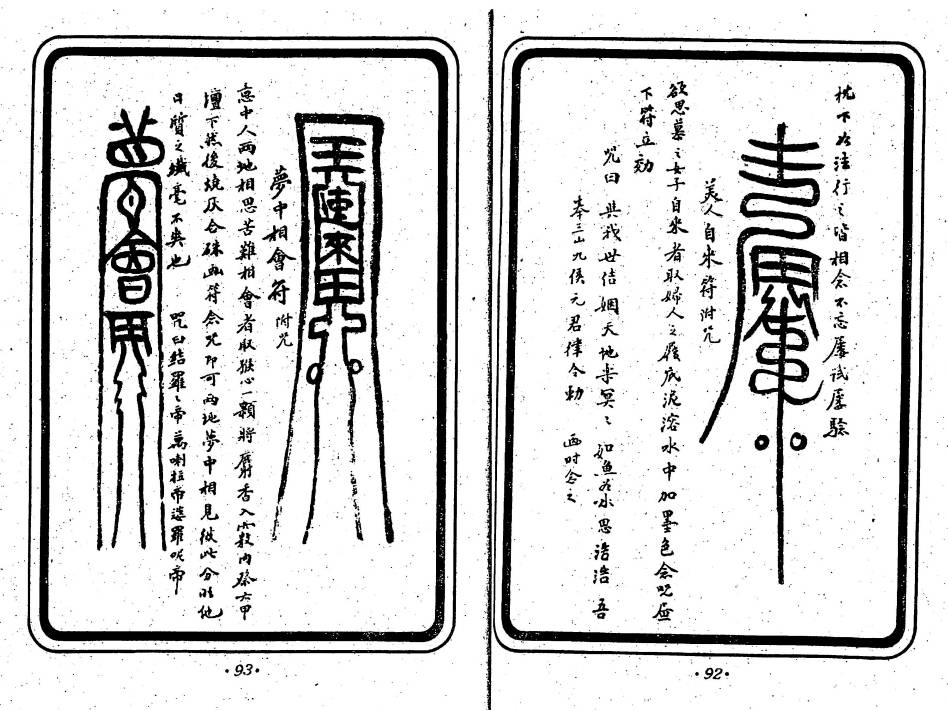 枕下如法行之皆相念不忘屢試屢驗
美人自來符附咒
欲思慕之女子自來者取婦人之履底泥溶水中加墨色念咒畫
下符立効
咒曰 與我世結姻天地 冥之如魚 水思浩浩 吾
奉三山九侯元君律令勅 画时念之
·92·
夢中相會符附咒
意中人兩地相思苦難相會者取猴心一顆將麝香入 內祭六甲
壇下然後燒灰合硃画符念咒即可兩地夢中相見彼此分明他
日質之纖毫不爽也 咒曰結羅之帝萬喇拉帝婆羅呢帝
·93·